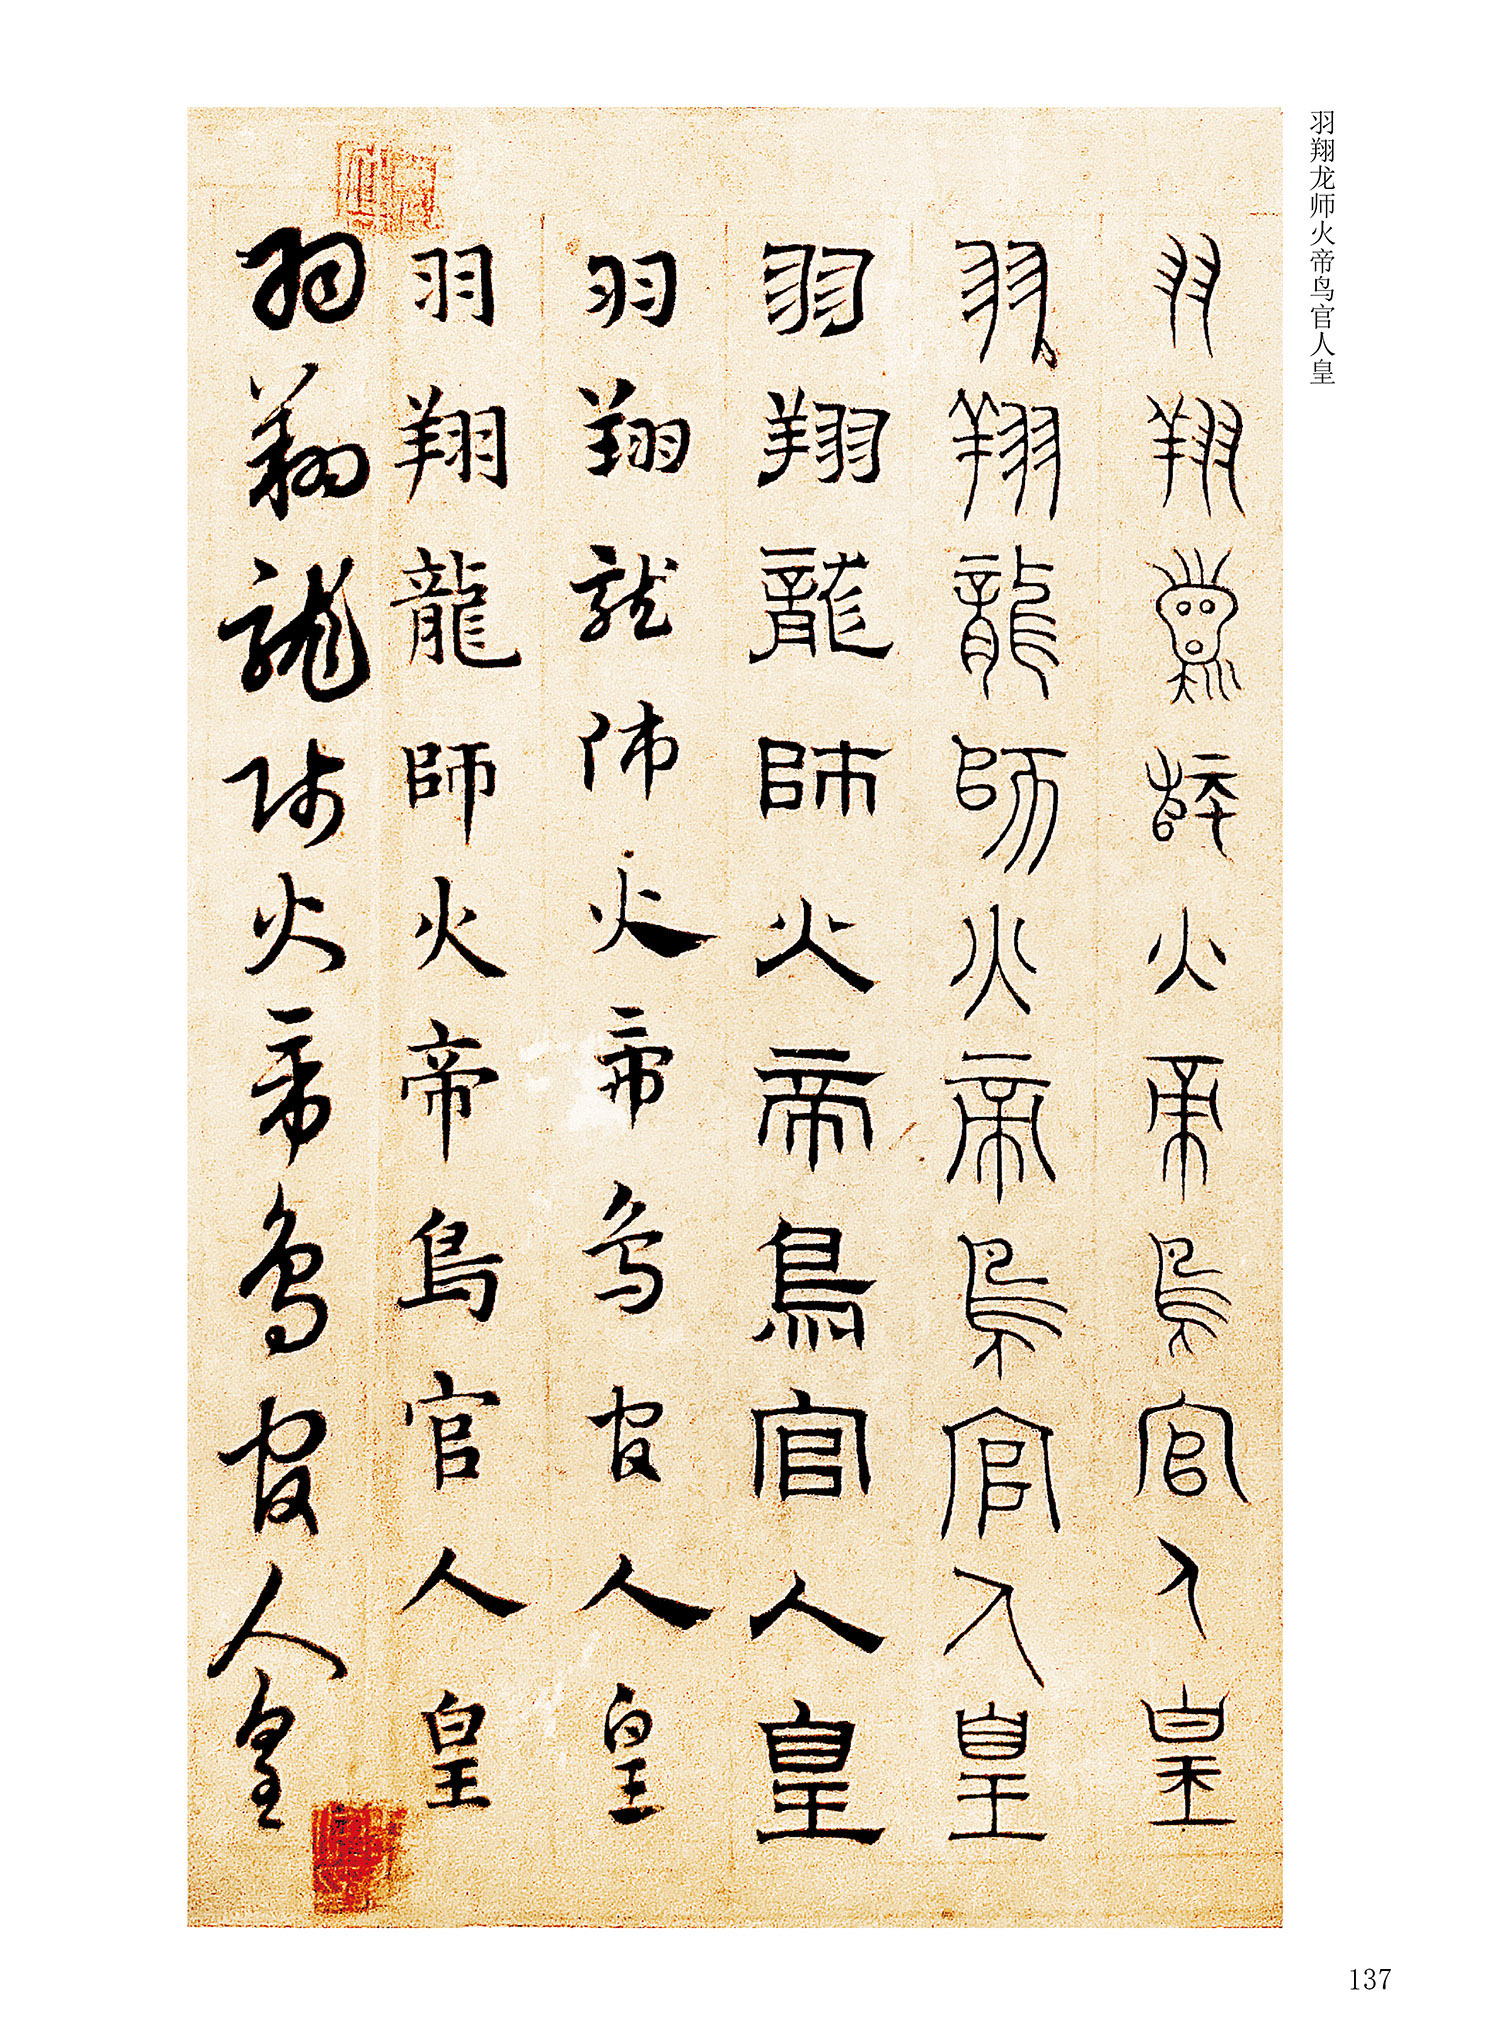 羽翔龙师火帝鸟官人皇
羽翔龍師火帝鳥官人皇
羽翔龍師火帝鳥官人皇
羽翔龍師火帝鳥官人皇
羽翔龍師火帝鳥官人皇
羽翔龍師火帝鳥官人皇
羽翔龍師火帝鳥官人皇
137